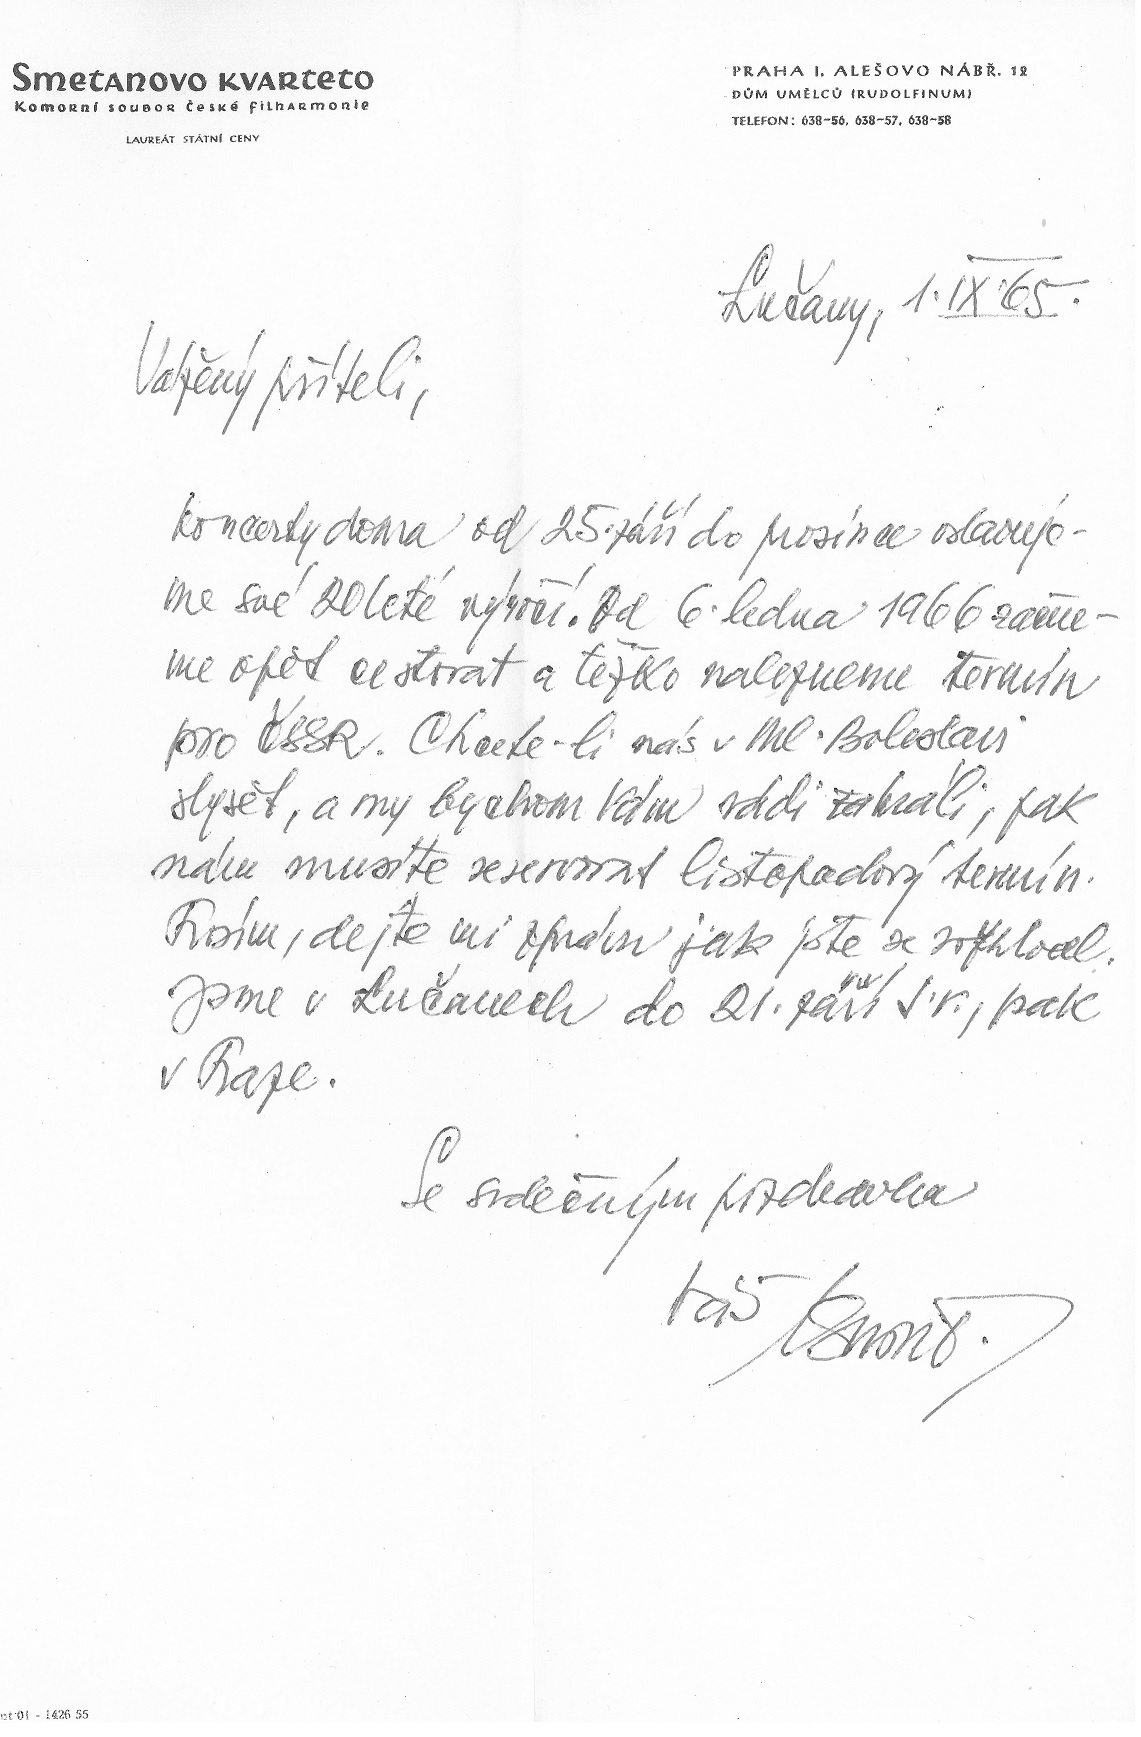 Smetanovo kvarteto
Komorní soubor České filharmonie
LAUREÁT STÁTNÍ CENY
PRAHA I. ALEŠOVO NÁBŘ. 12
DŮM UMĚLCŮ (RUDOLFINUM)
TELEFON: 638-56, 638-57, 638-58
Lučany, 1. IX. 65.
Vážený příteli,
koncerty doma od 25. září do prosince oslavuje-
me své 20leté výročí. Od 6. ledna 1966 začne-
me opět cestovat a těžko nalezneme termín
pro ČSSR. Chcete-li nás v Ml. Boleslavi
slyšet, a my bychom Vám rádi zahráli, pak
nám musíte reservovat listopadový termín.
Prosím, dejte mi zprávu jak jste se rozhodl.
Jsme v Lučanech do 21. září t.r., pak
v Praze.
Se srdečným pozdravem
Váš
01 - 1426 55